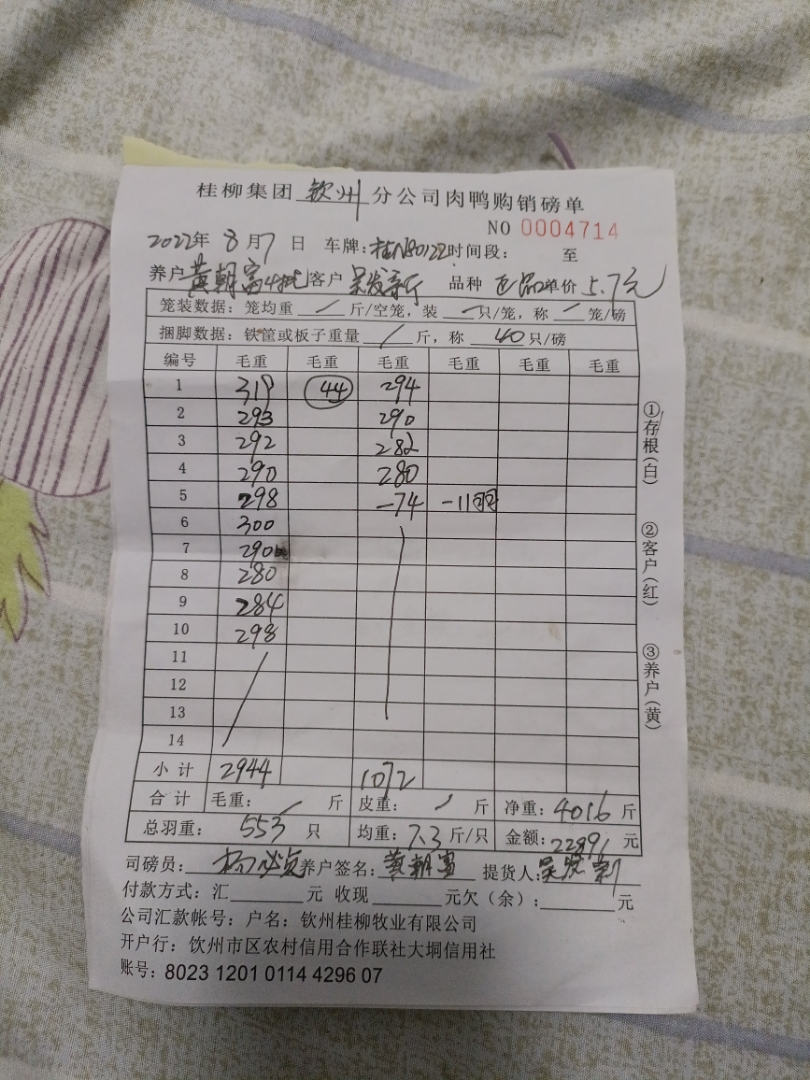 桂柳集团 钦州 分公司肉鸭购销磅单
NO 0004714
2022年 8月7日 车牌: 桂N80122 时间段: 至
养户 黄朝富4批 客户 吴发新 品种 正品 单价 5.7元
笼装数据: 笼均重 / 斤/空笼, 装 / 只/笼, 称 / 笼/磅
捆脚数据: 铁筐或板子重量 / 斤, 称 40 只/磅
编号 毛重 毛重 毛重 毛重 毛重 毛重
1 319 44 294
2 293 290
3 292 282
4 290 280
5 298 -74 -11羽
6 300
7 290
8 280
9 284
10 298
11
12
13
14
小计 2944 1072
合计 毛重: / 斤 皮重: / 斤 净重: 4016 斤
总羽重: 553 只 均重: 7.3 斤/只 金额: 22891 元
司磅员: 养户签名: 黄朝富 提货人: 吴发新
付款方式: 汇 元 收现 元欠(余): 元
公司汇款帐号: 户名: 钦州桂柳牧业有限公司
开户行: 钦州市区农村信用合作联社大垌信用社
账号: 8023 1201 0114 4296 07
①存根(白)
②客户(红)
③养户(黄)